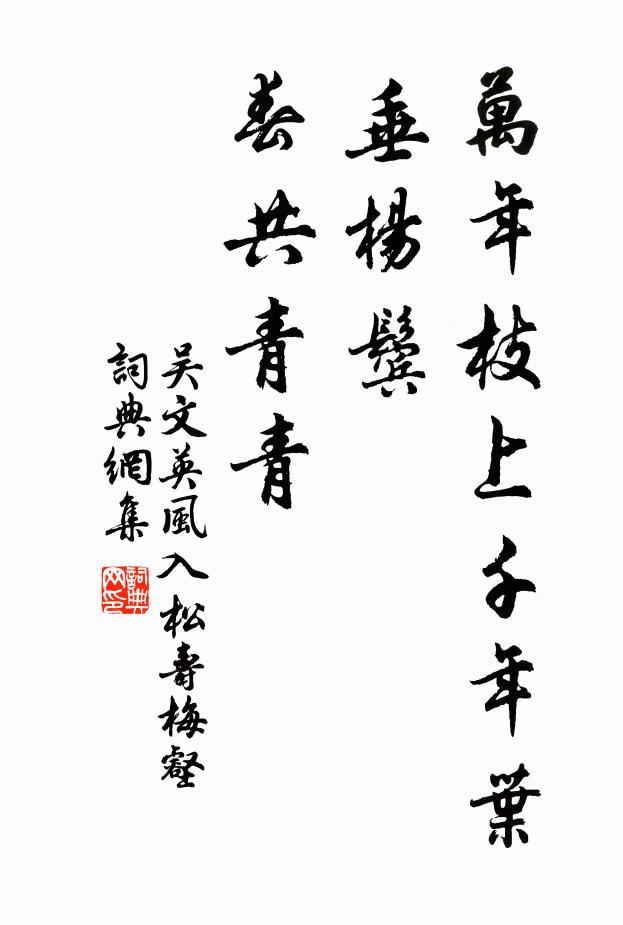 萬年枝上千年葉
垂楊鬢
春共青青
吴文英風入松壽梅壑
詞典網集
詞典网印